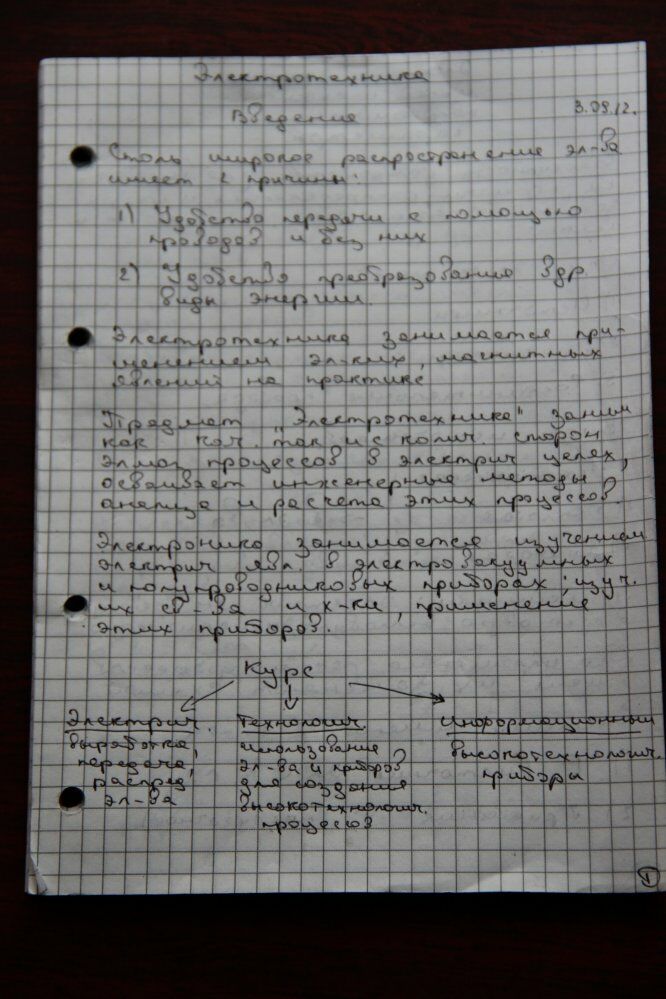 Электротехника
Введение 3.09.12.
Столь широкое распространение эл-ва
имеет 2 причины:
1) Удобство передачи с помощью
проводов и без них
2) Удобства преобразования в др.
виды энергии.
Электротехника занимается при-
менением эл-ких, магнитных
явлений на практике
Предмет „Электротехника" заним
как кач. так и с колич. сторон
элмаг процессов в электрич цепях,
осваивает инженерные методы
анализа и расчета этих процессов.
Электроника занимается изучением
электрич явл. в электровакуумных
и полупроводниковых приборах; изуч.
их св-ва и х-ки, применение
этих приборов.
Курс
Электрич. Технологич. Информационный
выработка, использование высокотехнологич.
передача, эл-ва и приборов приборы
распред для создания
эл-ва высокотехнологич.
процессов
1